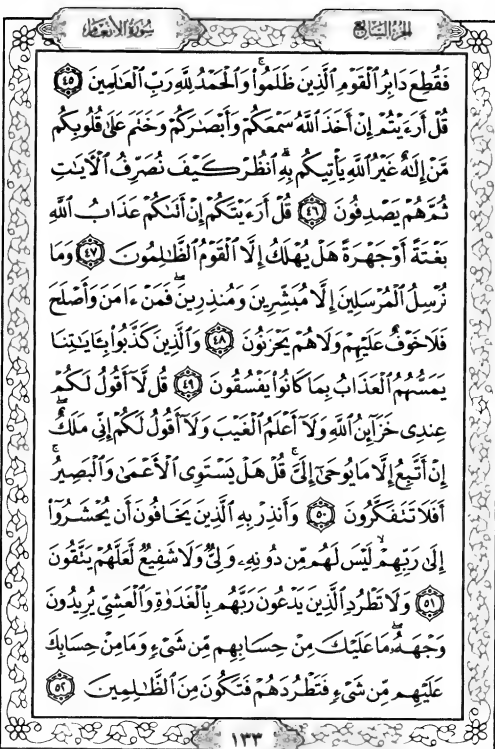 سُورَةُ الأَنْعَام
الجُزءُ السَّابِع
فَقُطِعَ دَابِرُ ٱلْقَوْمِ ٱلَّذِينَ ظَلَمُوا۟ ۚ وَٱلْحَمْدُ لِلَّهِ رَبِّ ٱلْعَـٰلَمِينَ ٤٥
قُلْ أَرَءَيْتُمْ إِنْ أَخَذَ ٱللَّهُ سَمْعَكُمْ وَأَبْصَـٰرَكُمْ وَخَتَمَ عَلَىٰ قُلُوبِكُم
مَّنْ إِلَـٰهٌ غَيْرُ ٱللَّهِ يَأْتِيكُم بِهِ ۗ ٱنظُرْ كَيْفَ نُصَرِّفُ ٱلْـَٔايَـٰتِ
ثُمَّ هُمْ يَصْدِفُونَ ٤٦ قُلْ أَرَءَيْتَكُمْ إِنْ أَتَىٰكُمْ عَذَابُ ٱللَّهِ
بَغْتَةً أَوْ جَهْرَةً هَلْ يُهْلَكُ إِلَّا ٱلْقَوْمُ ٱلظَّـٰلِمُونَ ٤٧ وَمَا
نُرْسِلُ ٱلْمُرْسَلِينَ إِلَّا مُبَشِّرِينَ وَمُنذِرِينَ ۖ فَمَنْ ءَامَنَ وَأَصْلَحَ
فَلَا خَوْفٌ عَلَيْهِمْ وَلَا هُمْ يَحْزَنُونَ ٤٨ وَٱلَّذِينَ كَذَّبُوا۟ بِـَٔايَـٰتِنَا
يَمَسُّهُمُ ٱلْعَذَابُ بِمَا كَانُوا۟ يَفْسُقُونَ ٤٩ قُل لَّآ أَقُولُ لَكُمْ
عِندِى خَزَآئِنُ ٱللَّهِ وَلَآ أَعْلَمُ ٱلْغَيْبَ وَلَآ أَقُولُ لَكُمْ إِنِّى مَلَكٌ ۖ
إِنْ أَتَّبِعُ إِلَّا مَا يُوحَىٰٓ إِلَىَّ ۚ قُلْ هَلْ يَسْتَوِى ٱلْأَعْمَىٰ وَٱلْبَصِيرُ ۚ
أَفَلَا تَتَفَكَّرُونَ ٥٠ وَأَنذِرْ بِهِ ٱلَّذِينَ يَخَافُونَ أَن يُحْشَرُوٓا۟
إِلَىٰ رَبِّهِمْ ۙ لَيْسَ لَهُم مِّن دُونِهِۦ وَلِىٌّ وَلَا شَفِيعٌ لَّعَلَّهُمْ يَتَّقُونَ
٥١ وَلَا تَطْرُدِ ٱلَّذِينَ يَدْعُونَ رَبَّهُم بِٱلْغَدَوٰةِ وَٱلْعَشِىِّ يُرِيدُونَ
وَجْهَهُۥ ۖ مَا عَلَيْكَ مِنْ حِسَابِهِم مِّن شَىْءٍ وَمَا مِنْ حِسَابِكَ
عَلَيْهِم مِّن شَىْءٍ فَتَطْرُدَهُمْ فَتَكُونَ مِنَ ٱلظَّـٰلِمِينَ ٥٢
١٣٣